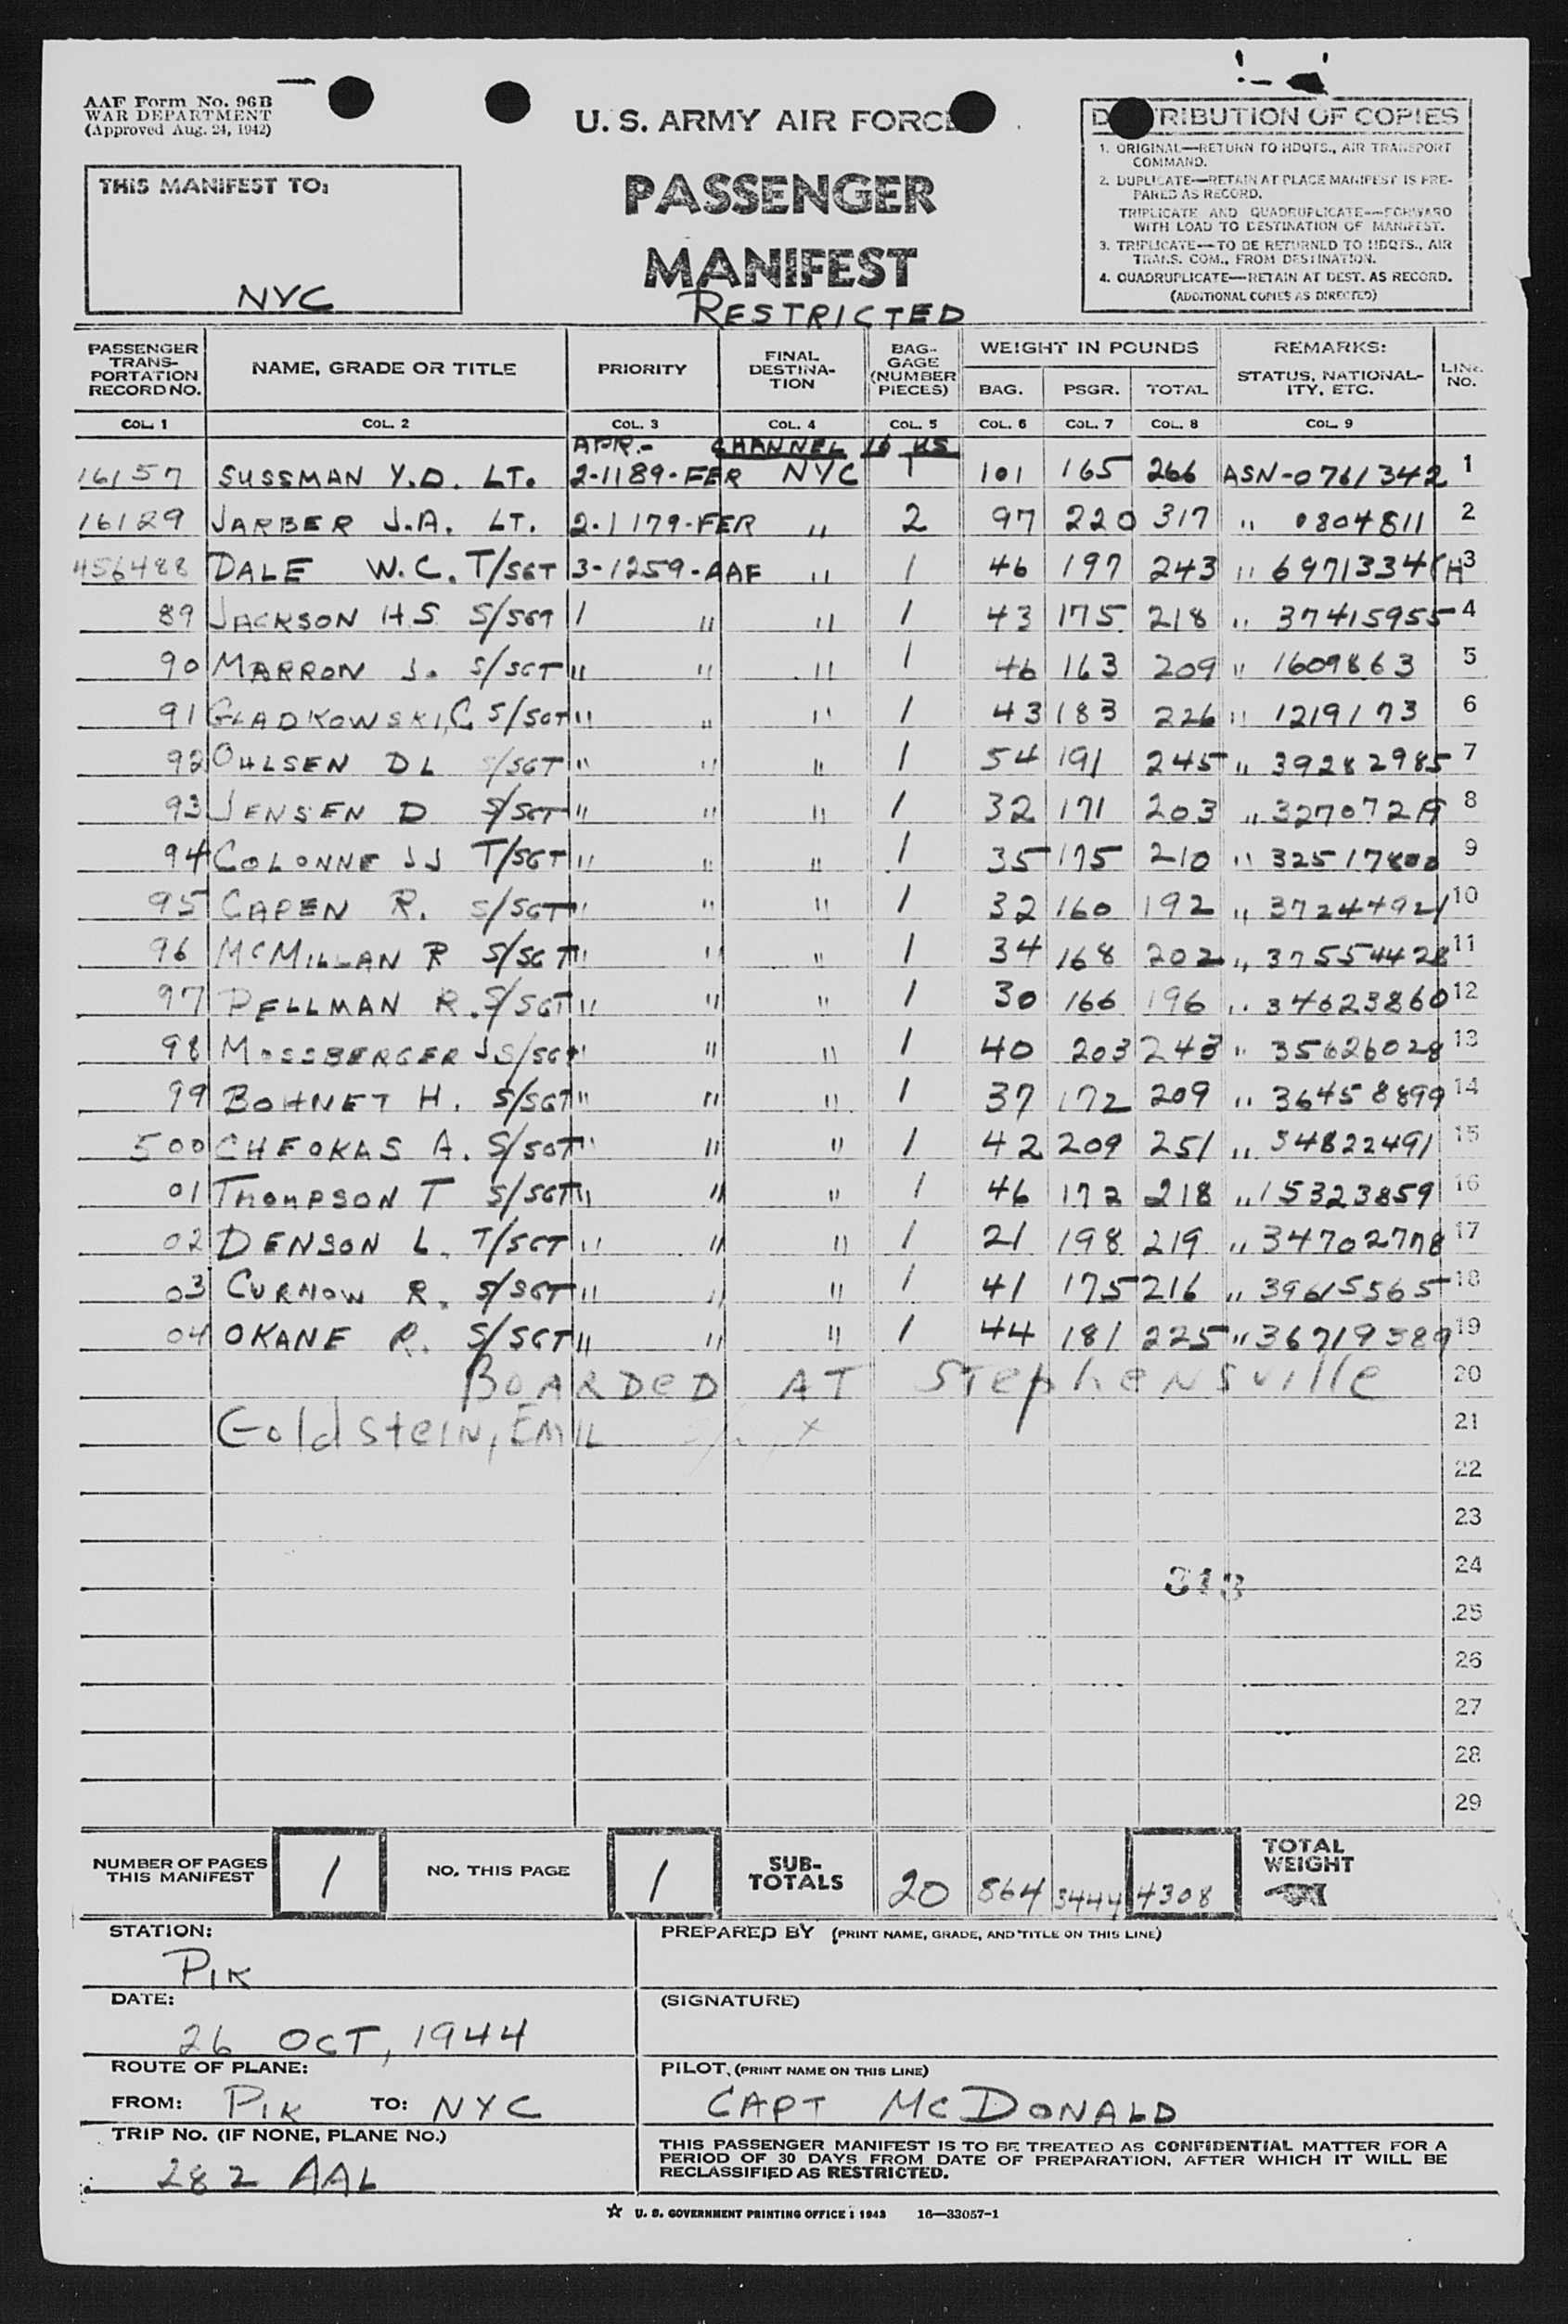 AAF Form No. 96B
WAR DEPARTMENT
(Approved Aug. 24, 1942)
U. S. ARMY AIR FORC
PASSENGER
MANIFEST
RESTRICTED
THIS MANIFEST TO:
NYC
D TRIBUTION OF COPIES
1. ORIGINAL—RETURN TO HDQTS., AIR TRANSPORT
COMMAND.
2. DUPLICATE—RETAIN AT PLACE MANIFEST IS PRE-
PARED AS RECORD.
TRIPLICATE AND QUADRUPLICATE—FORWARD
WITH LOAD TO DESTINATION OF MANIFEST.
3. TRIPLICATE—TO BE RETURNED TO HDQTS., AIR
TRANS. COM., FROM DESTINATION.
4. QUADRUPLICATE—RETAIN AT DEST. AS RECORD.
(ADDITIONAL COPIES AS DIRECTED)
PASSENGER TRANS- PORTATION RECORD NO. NAME, GRADE OR TITLE PRIORITY FINAL DESTINA- TION BAG- GAGE (NUMBER PIECES) WEIGHT IN POUNDS BAG. PSGR. TOTAL REMARKS: STATUS, NATIONAL- ITY, ETC. LINE NO.
COL. 1 COL. 2 COL. 3 COL. 4 COL. 5 COL. 6 COL. 7 COL. 8 COL. 9
APR.- CHANNEL 16 US
16157 SUSSMAN Y.D. LT. 2-1189-FER NYC 1 101 165 266 ASN-0761342 1
16129 JARBER J.A. LT. 2-1179-FER " 2 97 220 317 " 0804811 2
456488 DALE W.C. T/SGT 3-1259-AAF " 1 46 197 243 " 6971334 (H 3
89 JACKSON H S S/SGT 1 " " 1 43 175 218 " 37415955 4
90 MARRON J. S/SGT " " " 1 46 163 209 " 1609863 5
91 GLADKOWSKI, C S/SGT " " " 1 43 183 226 " 1219173 6
92 OHLSEN DL S/SGT " " " 1 54 191 245 " 39282985 7
93 JENSEN D S/SGT " " " 1 32 171 203 " 32707219 8
94 COLONNE JJ T/SGT " " " 1 35 175 210 " 32517800 9
95 CAPEN R. S/SGT " " " 1 32 160 192 " 37244921 10
96 MCMILLAN R S/SGT " " " 1 34 168 202 " 37554428 11
97 PELLMAN R. S/SGT " " " 1 30 166 196 " 34623860 12
98 MOSSBERGER J S/SGT " " " 1 40 203 243 " 35626028 13
99 BOHNET H. S/SGT " " " 1 37 172 209 " 36458899 14
500 CHEOKAS A. S/SGT " " " 1 42 209 251 " 34822491 15
01 THOMPSON T S/SGT " " " 1 46 172 218 " 15323859 16
02 DENSON L. T/SGT " " " 1 21 198 219 " 34702778 17
03 CURNOW R. S/SGT " " " 1 41 175 216 " 39615565 18
04 OKANE R. S/SGT " " " 1 44 181 225 " 36719389 19
BOARDED AT Stephensville 20
Goldstein, EMIL 21
22
23
24
313
25
26
27
28
29
NUMBER OF PAGES THIS MANIFEST 1 NO. THIS PAGE 1 SUB- TOTALS 20 864 3444 4308 TOTAL WEIGHT
STATION:
PIK
PREPARED BY (PRINT NAME, GRADE, AND TITLE ON THIS LINE)
DATE:
26 OCT, 1944
(SIGNATURE)
ROUTE OF PLANE:
FROM: PIK TO: NYC
PILOT, (PRINT NAME ON THIS LINE)
CAPT MCDONALD
TRIP No. (IF NONE, PLANE NO.)
282 AAL
THIS PASSENGER MANIFEST IS TO BE TREATED AS CONFIDENTIAL MATTER FOR A
PERIOD OF 30 DAYS FROM DATE OF PREPARATION, AFTER WHICH IT WILL BE
RECLASSIFIED AS RESTRICTED.
☆ U. S. GOVERNMENT PRINTING OFFICE : 1943 16—33057-1